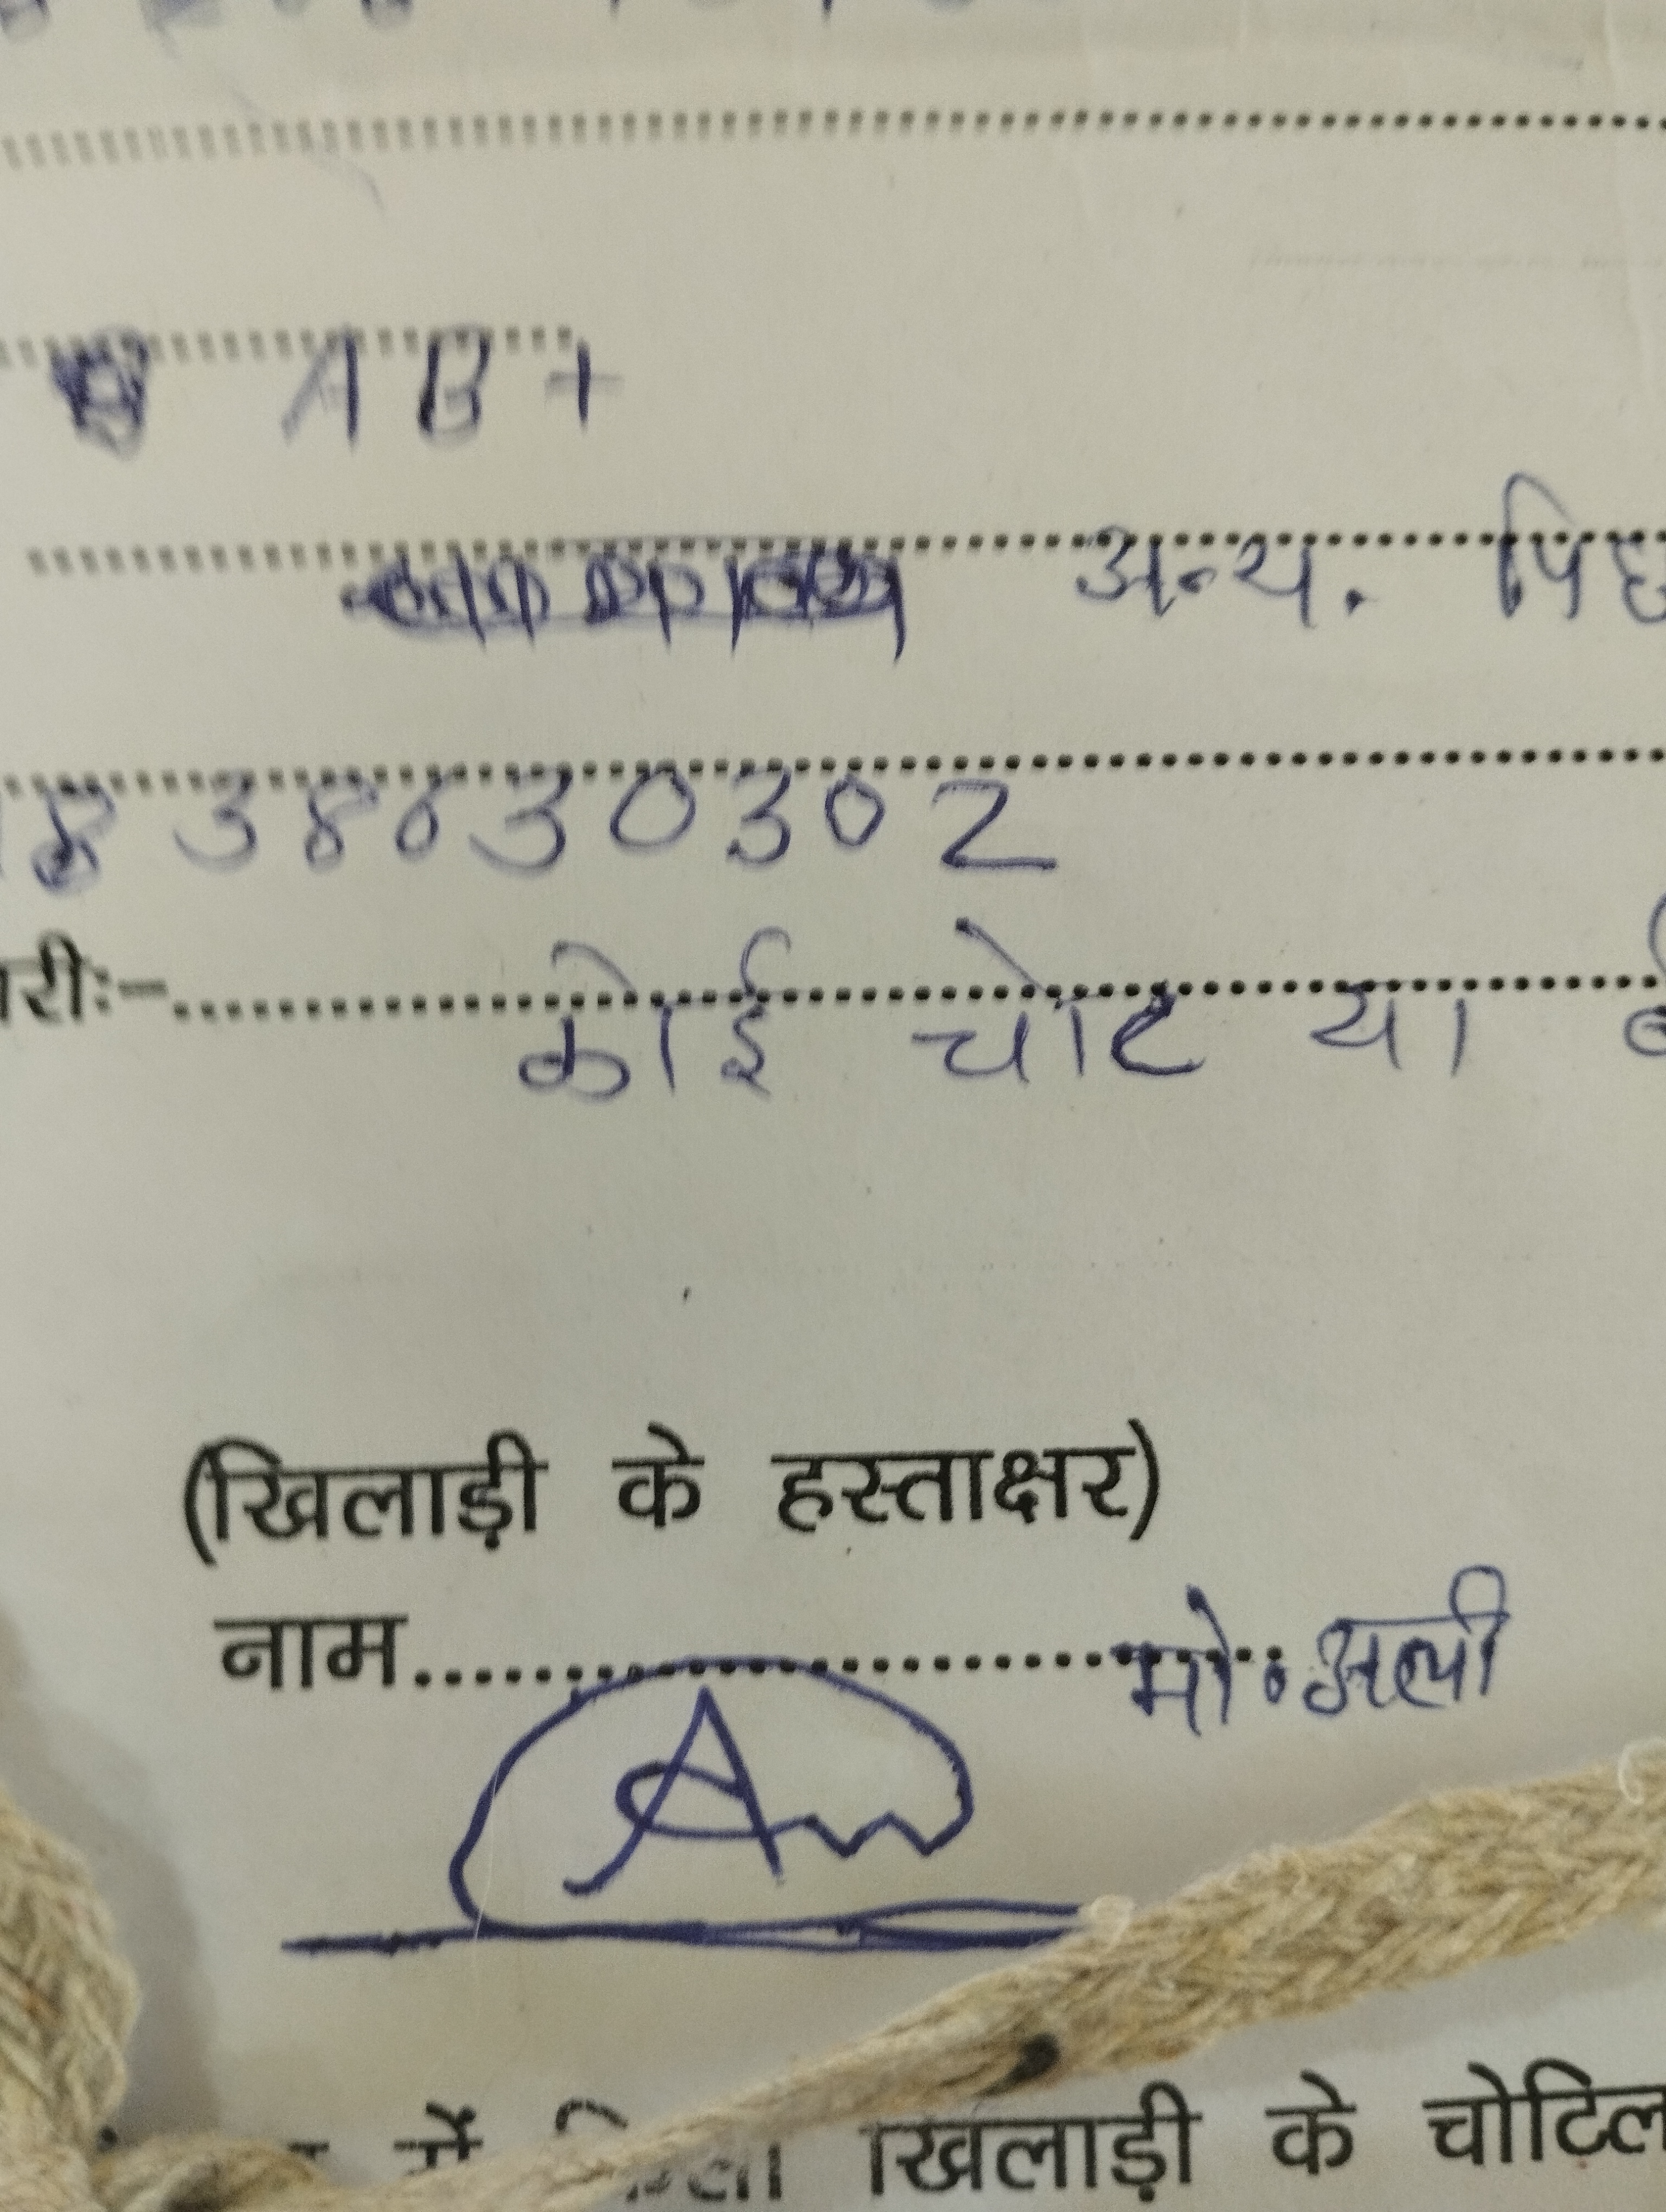 AB+
अन्य. पिछ
838430302
री:-.......... कोई चोट या
(खिलाड़ी के हस्ताक्षर)
नाम.......... मो. अली
में किसी खिलाड़ी के चोटिल